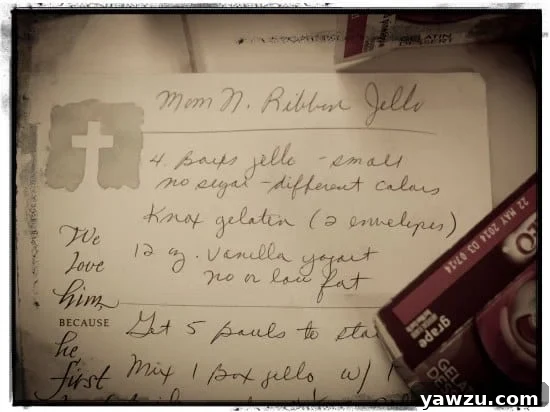 GELATIN
DESSERT
Mom N. Ribbon Jello
4. Boxes jello - small
no sugar - different colors
Knox gelatin (2 envelopes)
12 oz. Vanilla yogurt
no or low fat
We
love
him
BECAUSE
he
first
Get 5 bowls to sta
Mix 1 Box jello w/ 1
22 MAY 2014 03
grape
GELA
DES
yawzu.com